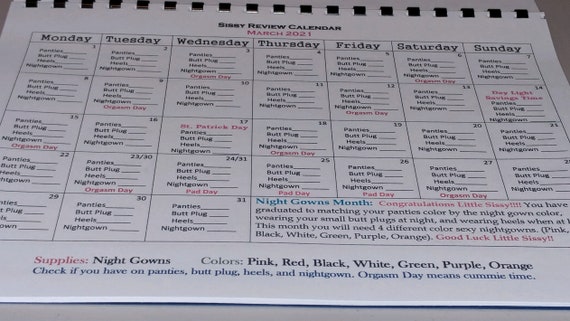 Sissy Review Calendar
March 2021
Monday Tuesday Wednesday Thursday Friday Saturday Sunday
1
Panties
Butt Plug
Heels
Nightgown
2
Panties
Butt Plug
Heels
Nightgown
3
Panties
Butt Plug
Heels
Nightgown
Orgasm Day
4
Panties
Butt Plug
Heels
Nightgown
5
Panties
Butt Plug
Heels
Nightgown
6
Panties
Butt Plug
Heels
Nightgown
7
Panties
Butt Plug
Heels
Nightgown
8
Panties
Butt Plug
Heels
Nightgown
9
Panties
Butt Plug
Heels
Nightgown
Orgasm Day
10
Panties
Butt Plug
Heels
Nightgown
11
Panties
Butt Plug
Heels
Nightgown
12
Panties
Butt Plug
Heels
Nightgown
13
Panties
Butt Plug
Heels
Nightgown
14
Day Light
Savings Time
15
Panties
Butt Plug
Heels
Nightgown
Orgasm Day
16
Panties
Butt Plug
Heels
Nightgown
17
St. Patrick Day
Panties
Butt Plug
Heels
Nightgown
18
Panties
Butt Plug
Heels
Nightgown
Orgasm Day
19
Panties
Butt Plug
Heels
Nightgown
20
Panties
Butt Plug
Heels
Nightgown
21
Panties
Butt Plug
Heels
Nightgown
22
Panties
Butt Plug
Heels
Nightgown
23/30
Panties
Butt Plug
Heels
Nightgown
Orgasm Day
24/31
Panties
Butt Plug
Heels
Nightgown
Pad Day
25
Panties
Butt Plug
Heels
Nightgown
Pad Day
26
Panties
Butt Plug
Heels
Nightgown
27
Panties
Butt Plug
Heels
Nightgown
Orgasm Day
28
Panties
Butt Plug
Heels
Nightgown
29
Panties
Butt Plug
Heels
Nightgown
30
Panties
Butt Plug
Heels
Nightgown
31
Panties
Butt Plug
Heels
Nightgown
Night Gowns Month: Congratulations Little Sissy!!!! You have
graduated to matching your panties color by the night gown color,
wearing your small butt plugs at night, and wearing heels when at
This month you will need 4 different color sexy nightgowns. (Pink,
Black, White, Green, Purple, Orange). Good Luck Little Sissy!!
Supplies: Night Gowns Colors: Pink, Red, Black, White, Green, Purple, Orange
Check if you have on panties, butt plug, heels, and nightgown. Orgasm Day means cummie time.